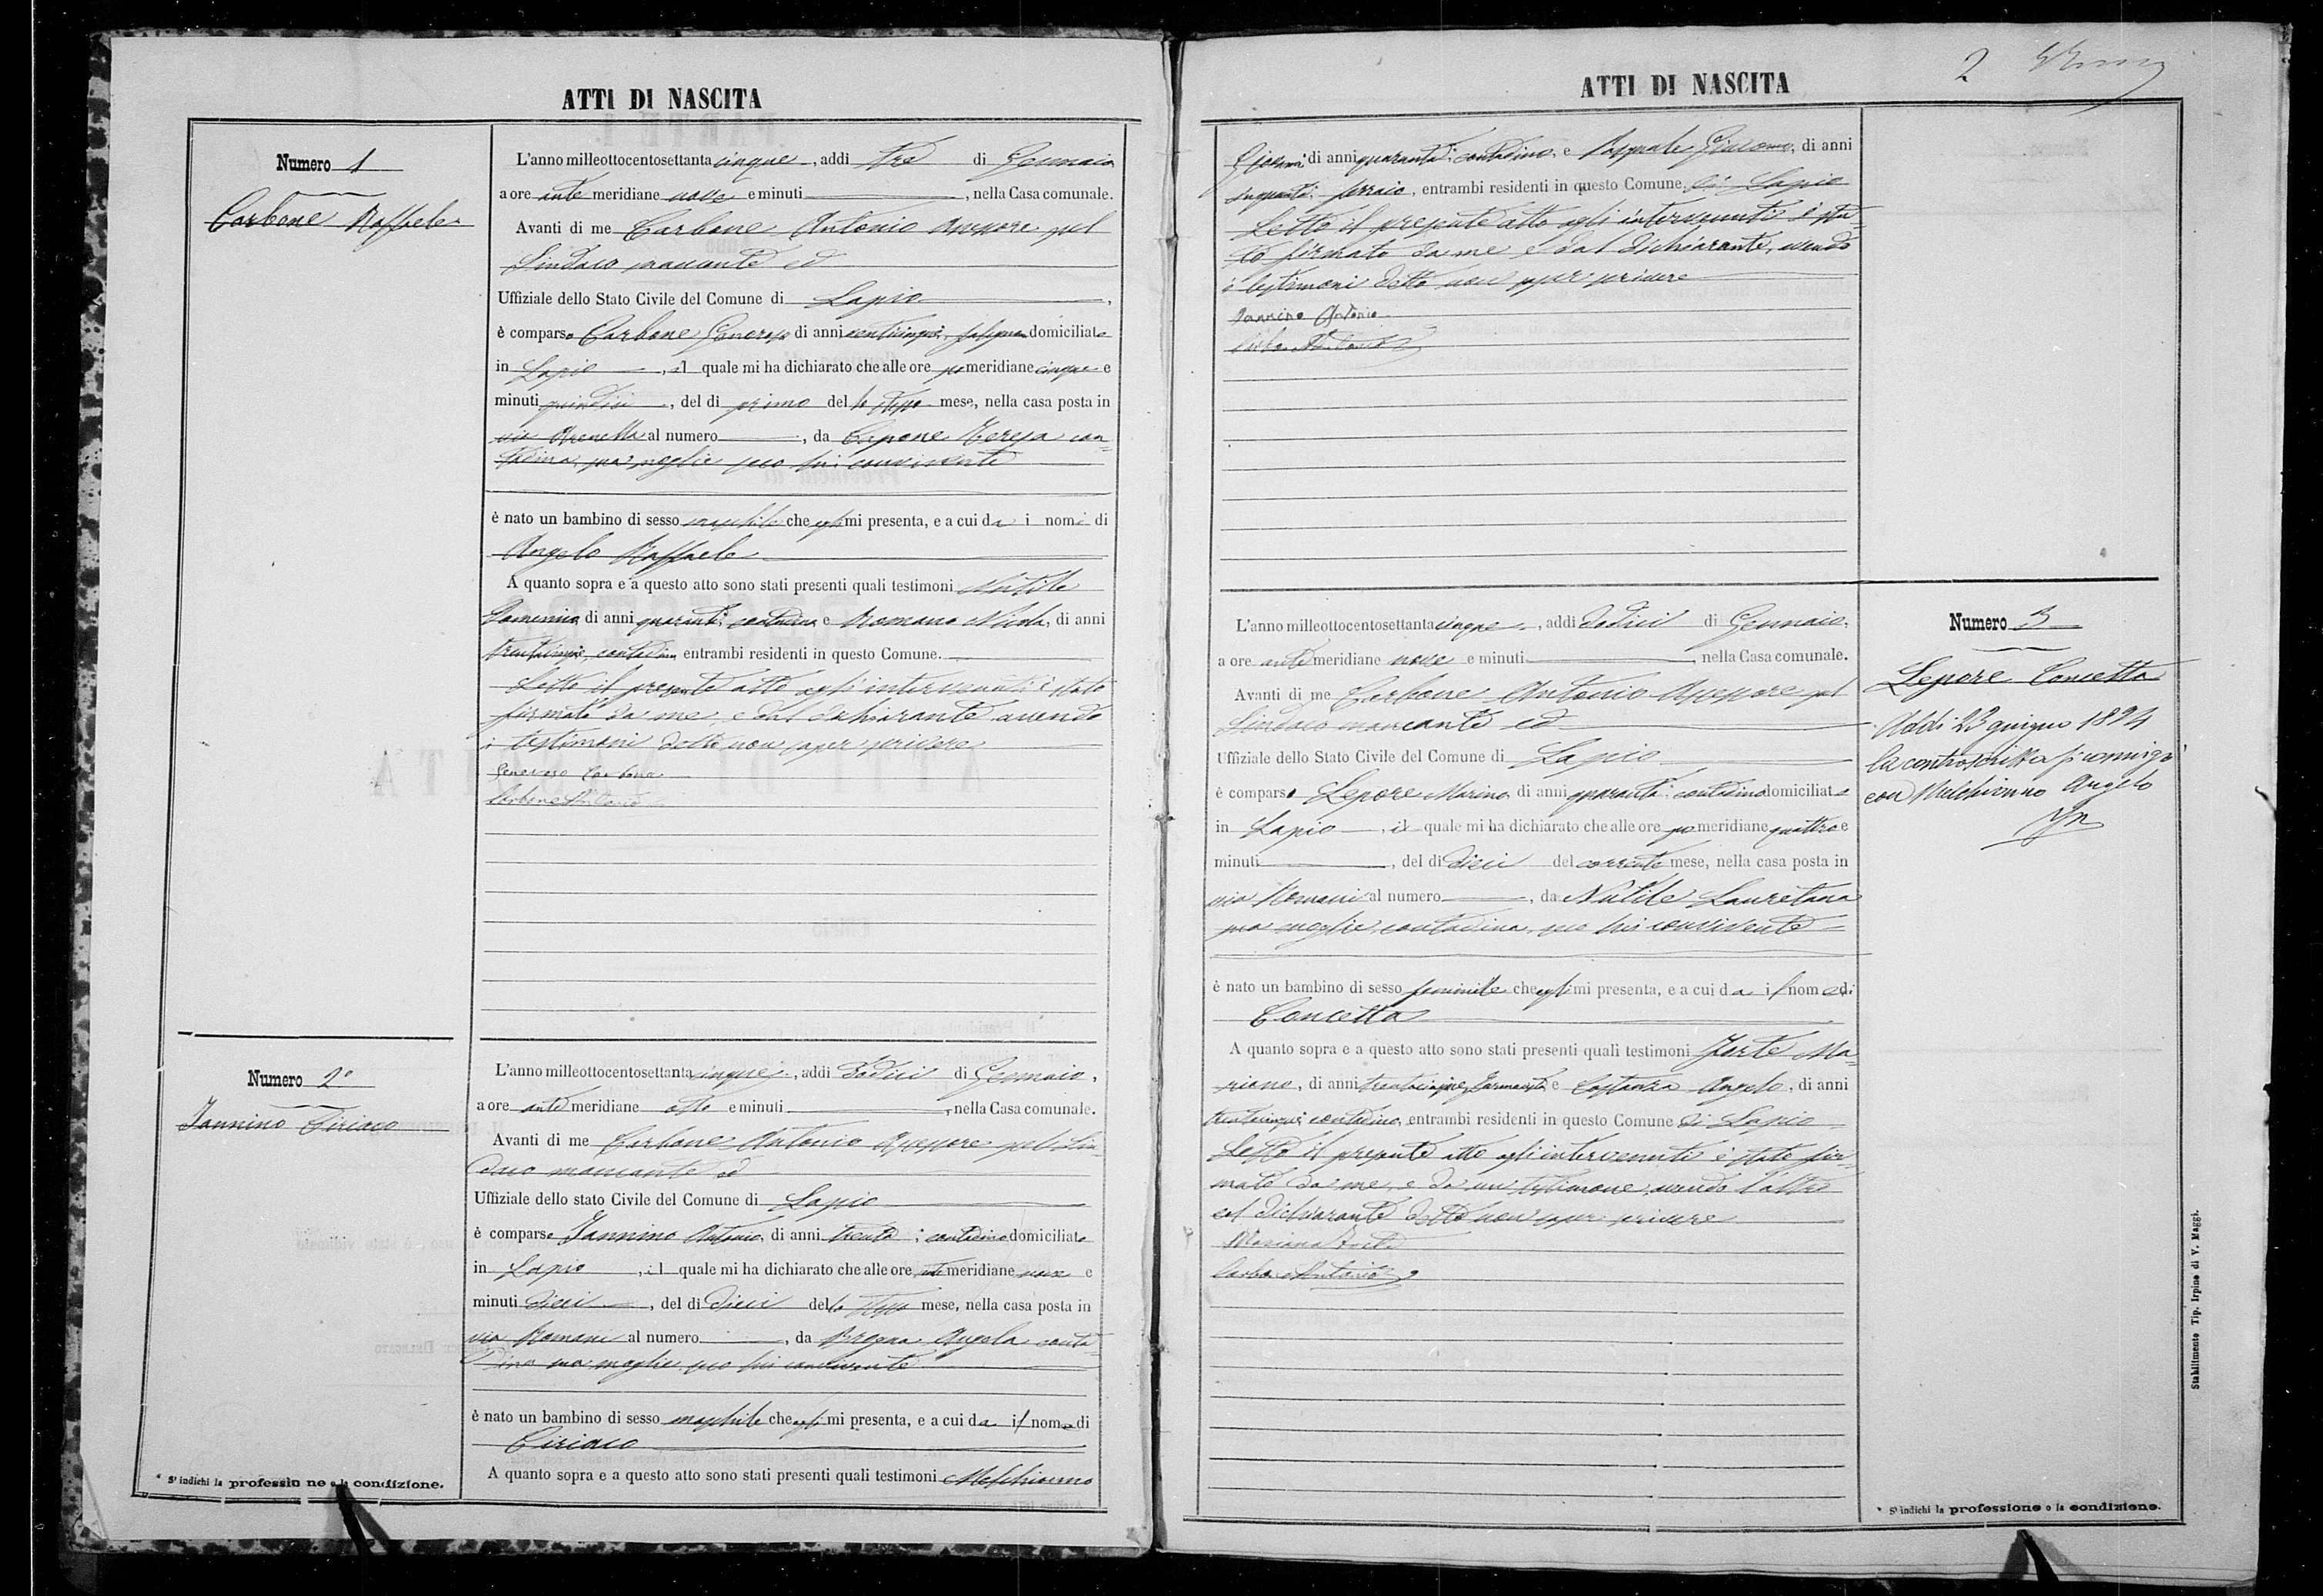 ATTI DI NASCITA
Numero 1
Carbone Raffaele
L'anno milleottocentosettantacinque, addi tre di Gennaio
a ore antemeridiane nove e minuti, nella Casa comunale.
Avanti di me Carbone Antonio Assessore pel
Sindaco mancante ed
Uffiziale dello Stato Civile del Comune di Lapio,
è comparso Carbone Generoso di anni venticinque, domiciliato
in Lapio, il quale mi ha dichiarato che alle ore pomeridiane cinque e
minuti quindici, del di primo dello stesso mese, nella casa posta in
via al numero, da Capone Teresa con-
tadina, sua moglie seco lui convivente
è nato un bambino di sesso maschile che egli mi presenta, e a cui da i nomi di
Angelo Raffaele
A quanto sopra e a questo atto sono stati presenti quali testimoni Nutile
Domenico di anni quaranta, contadino e Romano Nicola, di anni
trentacinque, contadino entrambi residenti in questo Comune.
Letto il presente atto agli intervenuti è stato
firmato da me, e dal dichiarante avendo
i testimoni detto non saper scrivere
Generoso Carbone
Carbone Antonio
Numero 2°
Iannino Ciriaco
L'anno milleottocentosettantacinque, addi dodici di Gennaio,
a ore antemeridiane otto e minuti, nella Casa comunale.
Avanti di me Carbone Antonio Assessore pel Sin-
daco mancante ed
Uffiziale dello stato Civile del Comune di Lapio
è comparso Iannino Antonio, di anni trenta, contadino domiciliato
in Lapio, il quale mi ha dichiarato che alle ore antemeridiane nove e
minuti dieci, del di dieci dello stesso mese, nella casa posta in
via Romani al numero, da Brogna Angela conta-
dina sua moglie seco lui convivente
è nato un bambino di sesso maschile che egli mi presenta, e a cui da il nome di
Ciriaco
A quanto sopra e a questo atto sono stati presenti quali testimoni Melchionno
* S' indichi la professio ne o la condizione.
ATTI DI NASCITA
2
di anni quaranta, contadino, e Pasquale Giacomo, di anni
ferraio, entrambi residenti in questo Comune di Lapio
Letto il presente atto agli intervenuti è sta-
to firmato da me e dal dichiarante, avendo
i testimoni detto non saper scrivere
Iannino Antonio
Carbone Antonio
L'anno milleottocentosettantacinque, addi dodici di Gennaio,
a ore antemeridiane nove e minuti, nella Casa comunale.
Avanti di me Carbone Antonio Assessore pel
Sindaco mancante ed
Uffiziale dello Stato Civile del Comune di Lapio
è comparso Lepore Marino di anni quaranta, contadino domiciliato
in Lapio, il quale mi ha dichiarato che alle ore pomeridiane quattro e
minuti, del di dieci del corrente mese, nella casa posta in
via Romani al numero, da Nutile Lauretana
sua moglie, contadina, seco lui convivente
è nato un bambino di sesso feminile che egli mi presenta, e a cui da il nome di
Concetta
A quanto sopra e a questo atto sono stati presenti quali testimoni Forte Ma-
riano, di anni trentacinque, farmacista e Costanza Angelo, di anni
trentacinque contadino, entrambi residenti in questo Comune di Lapio
Letto il presente atto agli intervenuti è stato fir-
mato da me, e da un testimone, avendo l'altro
col dichiarante detto non saper scrivere
Mariano Forte
Carbone Antonio
Numero 3
Lepore Concetta
Addi 23 giugno 1894
la controscritta si coniugò
con Melchionno Angelo
* S' indichi la professione o la condizione.
Stabilimento Tip. Irpino di V. Maggi.